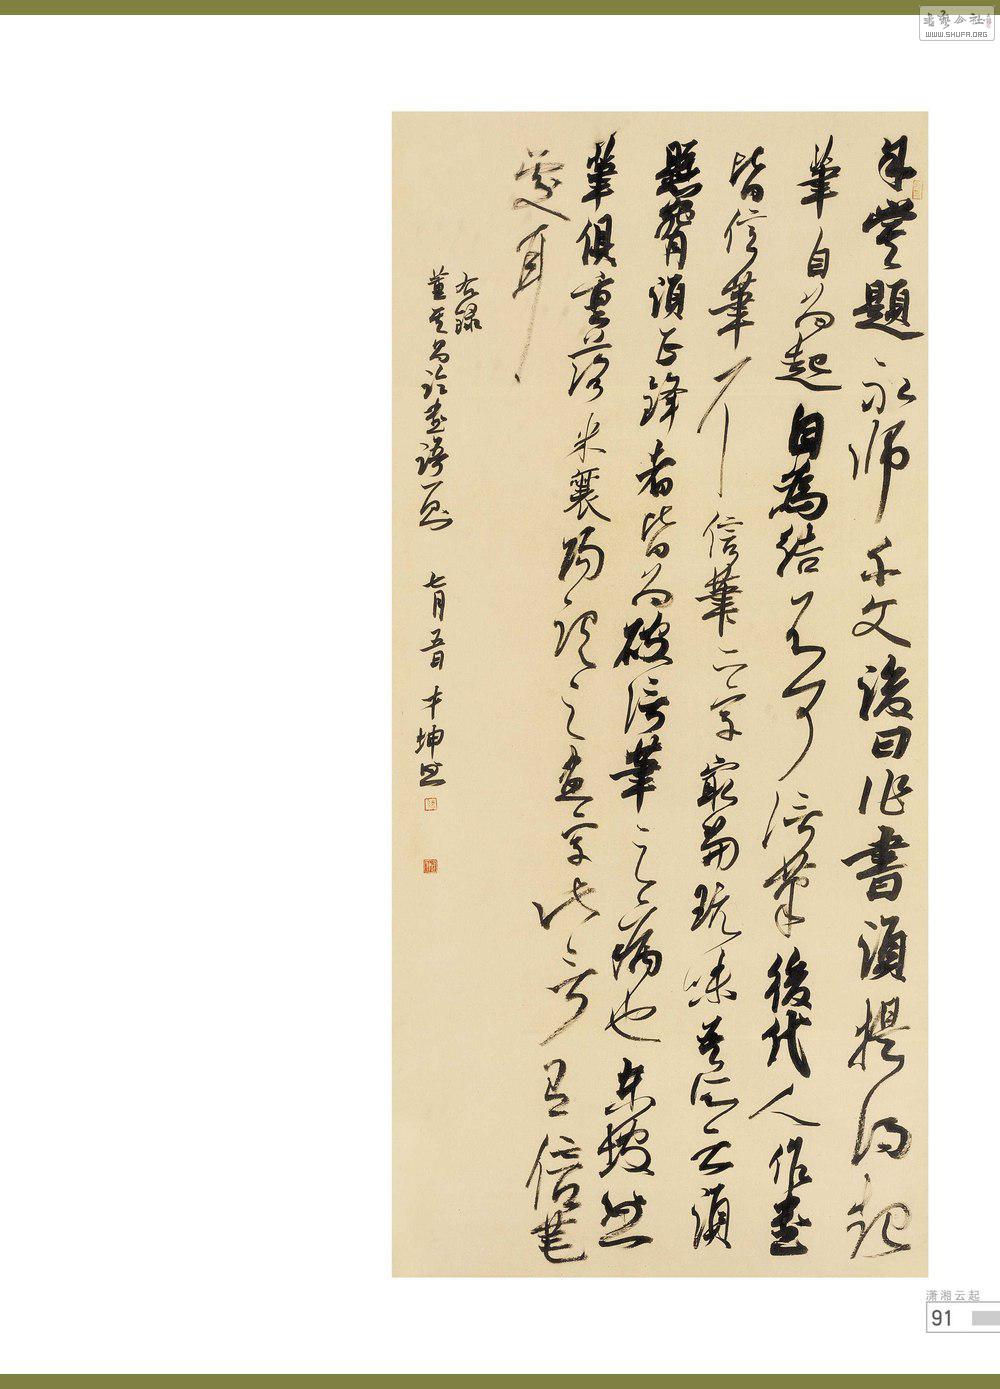 WWW.SHUFA.ORG
嘗題永師千文後曰作書須提得起
筆自为起自為結不可信筆後代人作書
皆信筆耳信筆二字最當玩味吾所云須
懸腕須正鋒者皆为破信筆之病也東坡
筆俱重落米襄陽謂之畫字此言有信筆
處耳
右錄
董其昌论書語一則 七月五日 坤
潇湘云起
91